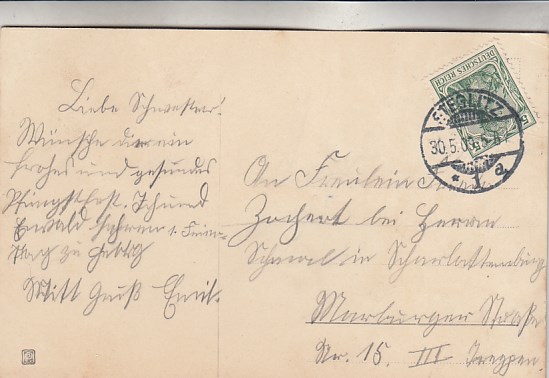 Liebe Schwester!
Wünsche dir ein
frohes und gesundes
Pfingstfest. Ich und
Ewald fahren 1. Feier-
tag zu
Mit Gruß Emil.
DEUTSCHES REICH
5
STEGLITZ
30.5.0
* 1 a.
An Fräulein
Zochert bei Herrn
in Charlottenburg
Marburger Straße
Nr. 15. III Treppen.